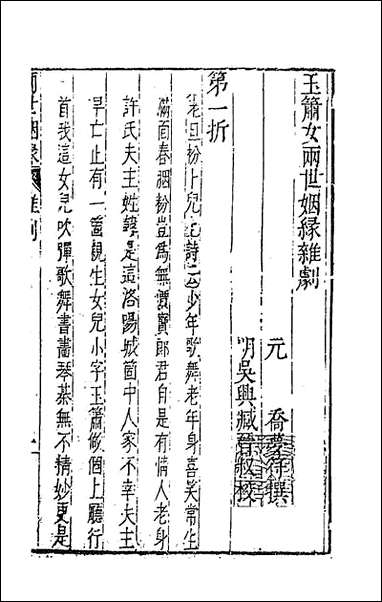 玉簫女兩世姻緣雜劇
元　喬夢符撰
明吳興臧晉叔校
第一折
老旦扮卜兒上詩云少年歌舞老年身喜笑常生
滿面春烟粉豈爲無價寶郎君自是有情人老身
許氏夫主姓韓是這洛陽城箇中人家不幸夫主
早亡止有一箇親生女兒小字玉簫做個上廳行
首我這女兒吹彈歌舞書畫琴棊無不精妙更是
兩世姻緣　雜劇
一